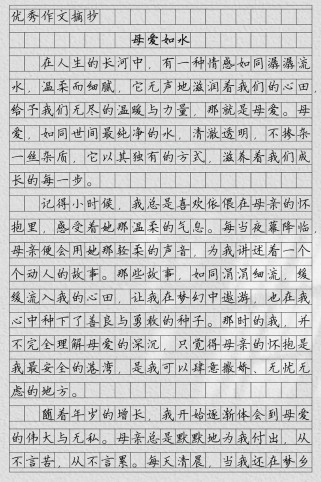 优秀作文摘抄
母爱如水
在人生的长河中，有一种情感如同潺潺流
水，温柔而细腻，它无声地滋润着我们的心田，
给予我们无尽的温暖与力量，那就是母爱。母
爱，如同世间最纯净的水，清澈透明，不掺杂
一丝杂质，它以其独有的方式，滋养着我们成
长的每一步。
记得小时候，我总是喜欢依偎在母亲的怀
抱里，感受着她那温柔的气息。每当夜幕降临，
母亲便会用她那轻柔的声音，为我讲述着一个
个动人的故事。那些故事，如同涓涓细流，缓
缓流入我的心田，让我在梦幻中遨游，也在我
心中种下了善良与勇敢的种子。那时的我，并
不完全理解母爱的深沉，只觉得母亲的怀抱是
我最安全的港湾，是我可以肆意撒娇、无忧无
虑的地方。
随着年岁的增长，我开始逐渐体会到母爱
的伟大与无私。母亲总是默默地为我付出，从
不言苦，从不言累。每天清晨，当我还在梦乡